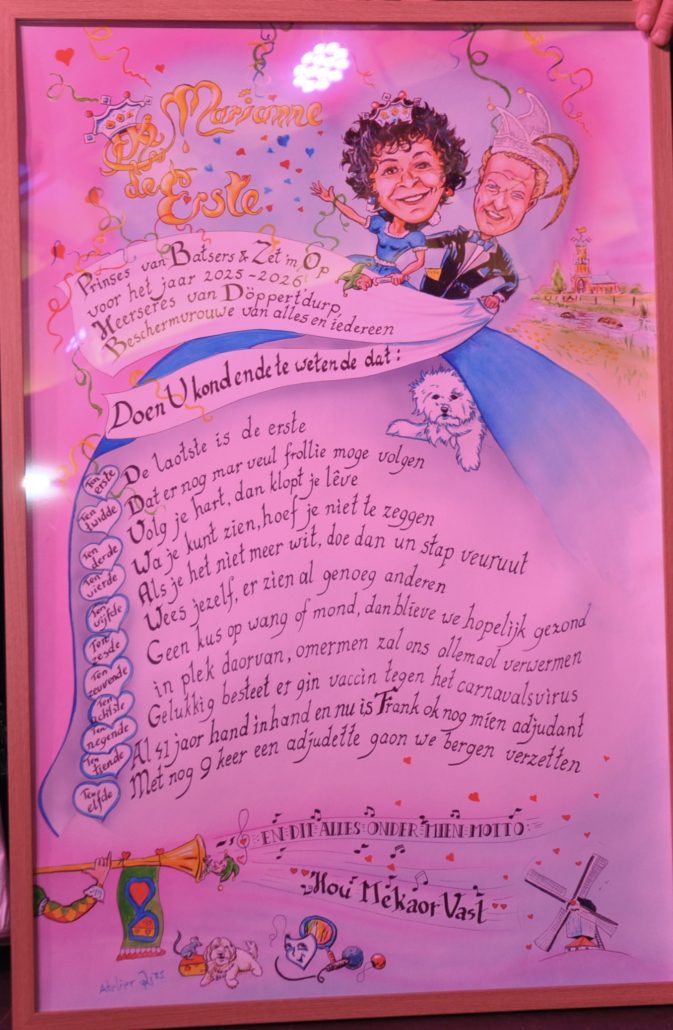 Marianne
de Erste
Prinses van Batsers & Zet'm Op
voor het jaar 2025-2026
Heerseres van Döppert'durp,
Beschermvrouwe van alles en iedereen
Doen U kond ende te weten de dat:
Ten erste De laotste is de erste
Ten twidde Dat er nog mar veul frollie moge volgen
Ten derde Volg je hart, dan klopt je lêve
Ten vierde Wa je kunt zien, hoef je niet te zeggen
Ten vijfde Als je het niet meer wit, doe dan un stap veuruut
Ten zesde Wees jezelf, er zien al genoeg anderen
Ten zeuvende Geen kus op wang of mond, dan blieve we hopelijk gezond
Ten achtste in plek daorvan, omermen zal ons allemaol verwermen
Ten negende Gelukkig besteet er gin vaccin tegen het carnavalsvirus
Ten tiende Al 41 jaor hand in hand en nu is Frank ok nog mien adjudant
Ten elfde Met nog 9 keer een adjudette gaon we bergen verzetten
EN DIT ALLES ONDER MIEN MOTTO
Hou Mekaor Vast
B
Atelier